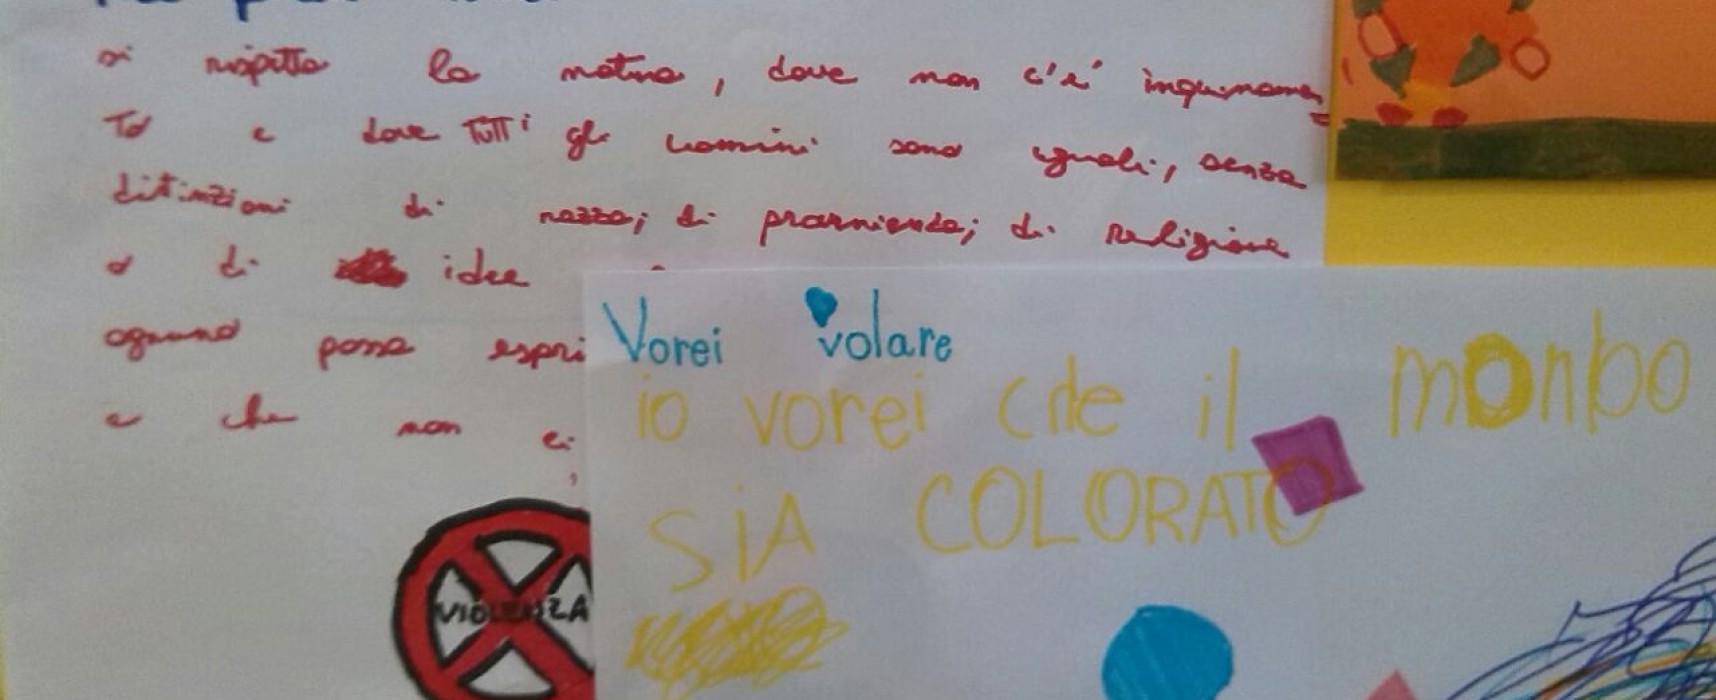 si rispetta la natura, dove non c'e' inquinamen
to e dove tutti gli uomini sono uguali, senza
ditinzioni di razza; di provenienza; di religione
o di idee
ognuno possa espri
e che non ci
VIOLENZA
Vorei volare
io vorei che il mondo
SiA COLORATO